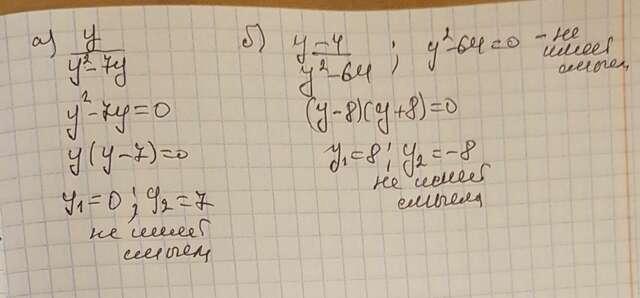 а) y / y²-7y
y²-7y=0
y(y-7)=0
y₁=0; y₂=7
не имеет
смысл
б) y-4 / y²-64 ; y²-64=0 - не
имеет
смысл
(y-8)(y+8)=0
y₁=8; y₂=-8
не имеет
смысл